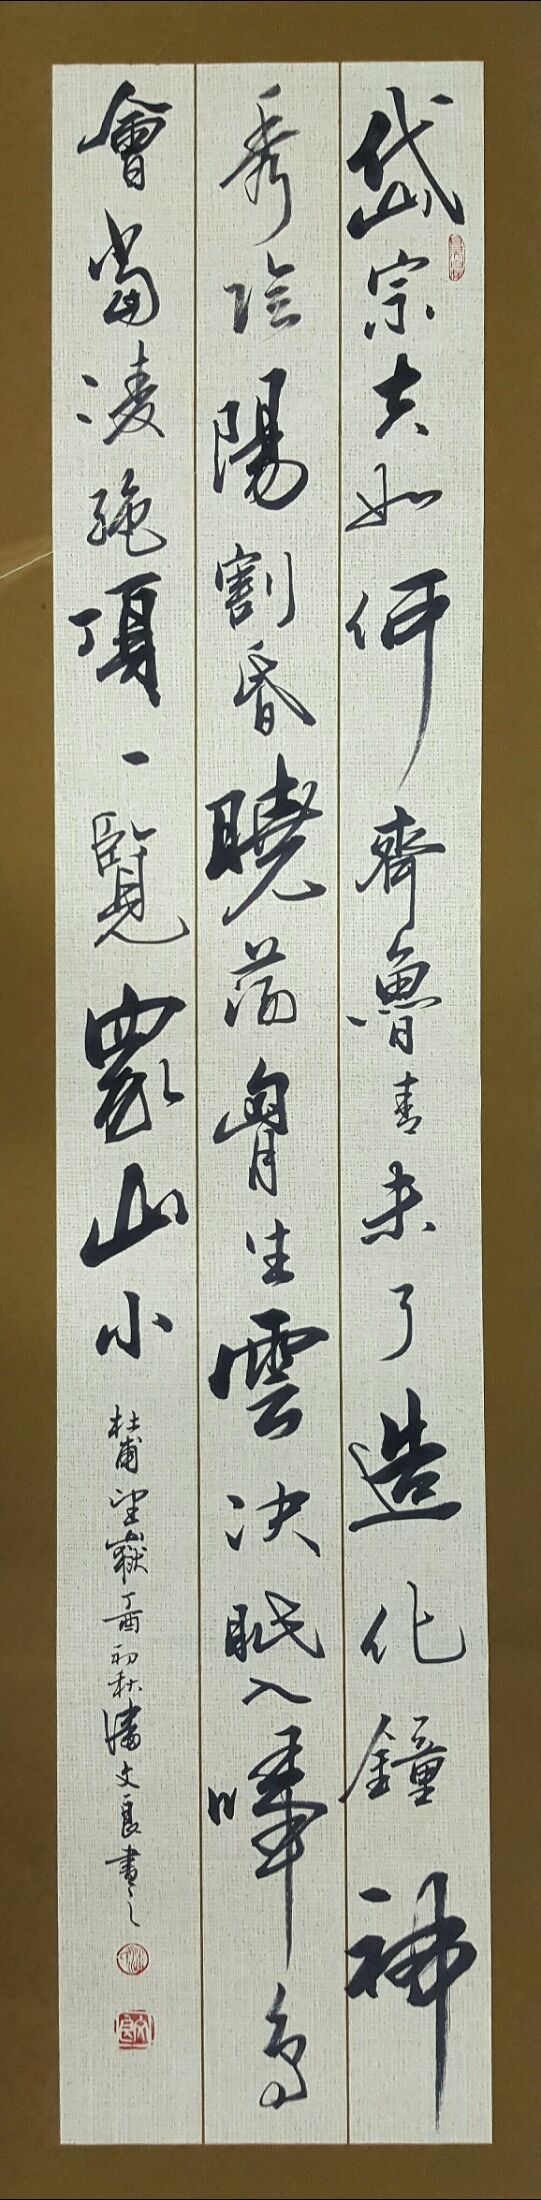 岱宗夫如何齊魯青未了造化鐘神
秀陰陽割昏曉蕩胷生雲決眥入歸鳥
會當凌絕頂一覽眾山小
杜甫望嶽丁酉初秋潘文良書之
文良